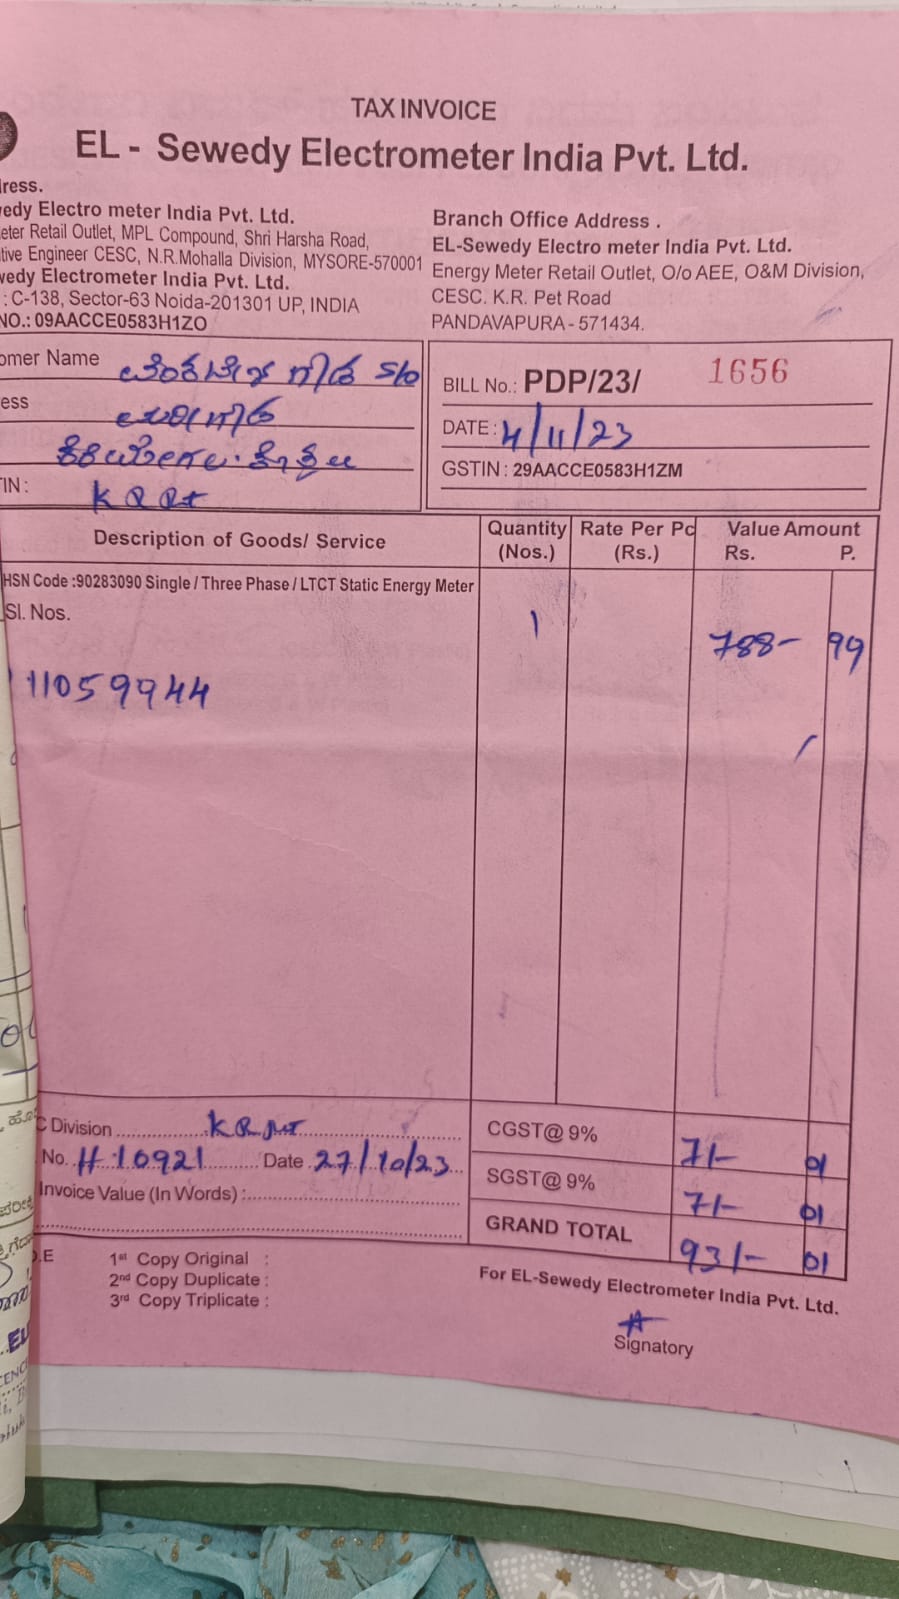 TAX INVOICE
EL - Sewedy Electrometer India Pvt. Ltd.
ress.
edy Electro meter India Pvt. Ltd.
eter Retail Outlet, MPL Compound, Shri Harsha Road,
tive Engineer CESC, N.R.Mohalla Division, MYSORE-570001
wedy Electrometer India Pvt. Ltd.
: C-138, Sector-63 Noida-201301 UP, INDIA
NO.: 09AACCE0583H1ZO
Branch Office Address .
EL-Sewedy Electro meter India Pvt. Ltd.
Energy Meter Retail Outlet, O/o AEE, O&M Division,
CESC. K.R. Pet Road
PANDAVAPURA - 571434.
omer Name ವೆಂಕಟೇಶ ಗೌಡ S/o
ess
IN :
BILL No.: PDP/23/ 1656
DATE : 4/11/23
GSTIN : 29AACCE0583H1ZM
Description of Goods/ Service Quantity (Nos.) Rate Per Pc (Rs.) Value Amount Rs. P.
HSN Code :90283090 Single / Three Phase / LTCT Static Energy Meter
Sl. Nos. 1 788- 99
11059944
C Division KRPet
No. H 10921 Date 27/10/23
Invoice Value (In Words) :
CGST@ 9% 71/- 01
SGST@ 9% 71/- 01
GRAND TOTAL 931/- 01
.E
1st Copy Original :
2nd Copy Duplicate :
3rd Copy Triplicate :
For EL-Sewedy Electrometer India Pvt. Ltd.
Signatory